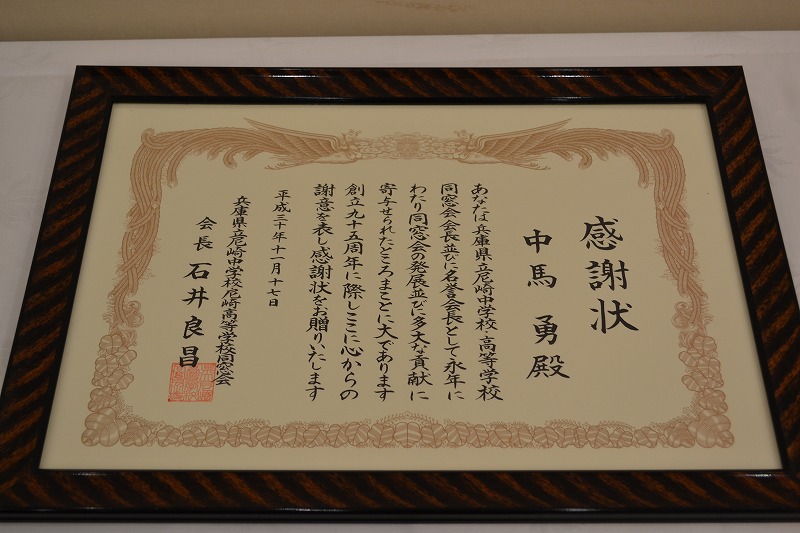 感謝状
中馬 勇殿
あなたは兵庫県立尼崎中学校・高等学校
同窓会会長並びに名誉会長として永年に
わたり同窓会の発展並びに多大な貢献に
寄与せられたところまことに大であります
創立九十五周年に際しここに心からの
謝意を表し感謝状をお贈りいたします
平成三十年十一月十七日
兵庫県立尼崎中学校尼崎高等学校同窓会
会長 石井良昌